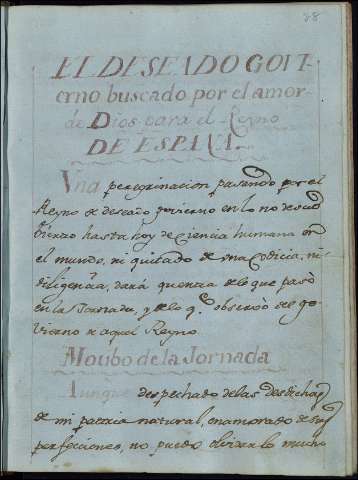 28
EL DESEADO GOVI-
erno buscado por el amor
de Dios para el Reyno
DE ESPAÑA.
Vna peregrinacion pasando por el
Reyno de deseado govierno en lo no descu
bierto hasta hoy de ciencia humana en
el mundo, ni quitado de ma codicia, ni
diligencia, dará quenta de lo que pasó
en la Jornada, y de lo q.e observó de go-
vierno de aquel Reyno.
Motibo de la Jornada
Aunque despechado de las desdichas
de mi patria natural, enamorado de sus
perfecciones, no puedo olvidar lo mucho